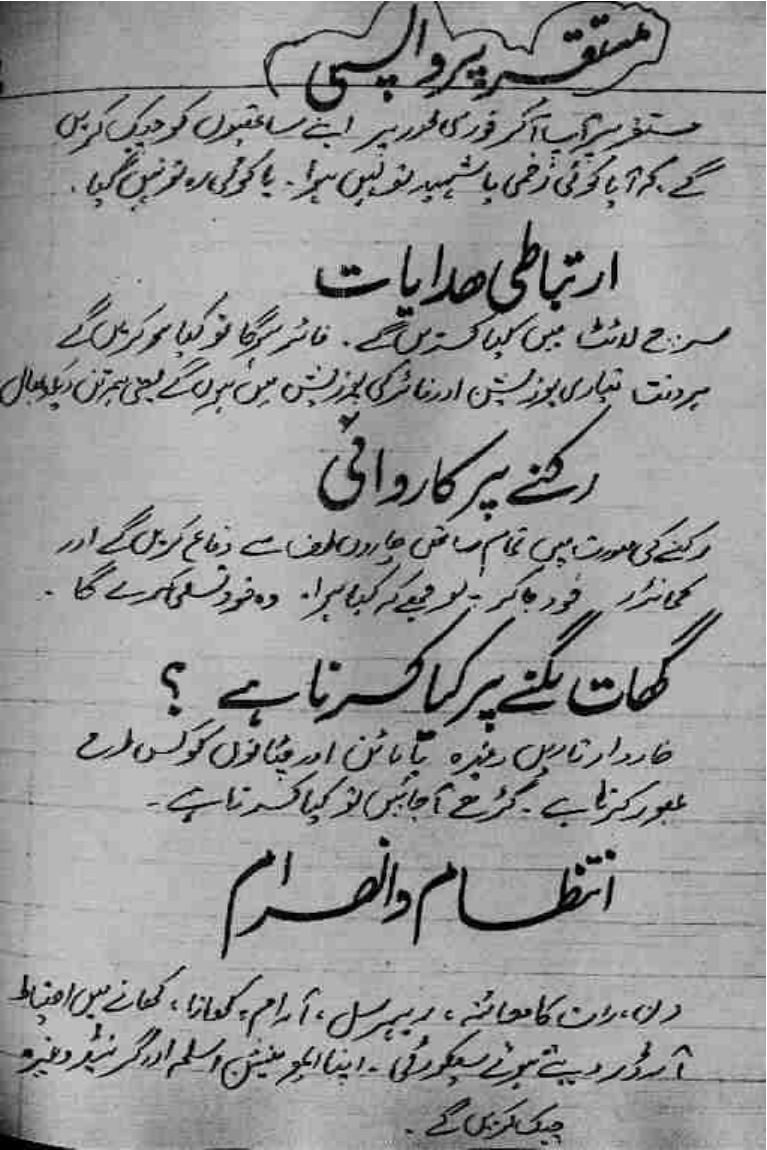 مستقر پر واپسی
مستقر پر آپ آکر فوری طور پر اپنے ساتھیوں کو چیک کریں
گے، کہ آیا کوئی زخمی یا شہید تو نہیں ہوا۔ یا کوئی رہ تو نہیں گیا۔
ارتباطی ھدایات
سرچ لائٹ میں کیا کریں گے۔ فائر ہوگا تو کیا کریں گے
ہر وقت تیاری پوزیشن اور فائر کی پوزیشن میں ہوں گے یعنی ہمہ تن دیکھ بھال
رکنے پر کاروائی
رکنے کی صورت میں تمام ساتھی چاروں طرف سے دفاع کریں گے اور
کمانڈر خود جا کر پوچھے کہ کیا ہوا۔ وہ خود تسلی کرے گا۔
گھات لگنے پر کیا کرنا ہے ؟
خاردار تاریں وغیرہ یا پائن اور چٹانوں کو کس طرح
عبور کرنا ہے۔ گڑھے آجائیں تو کیا کرنا ہے۔
انتظام وانصرام
دن، رات کا معائنہ، ریہرسل، آرام، کھانا، کھانے میں احتیاط
آرڈر دیتے ہوئے سیکورٹی۔ اپنا ایمونیشن اسلحہ اور گرنیڈ وغیرہ
چیک کریں گے۔